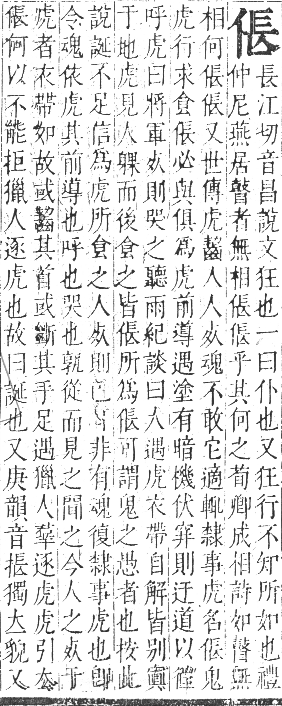 倀長江切音昌說文狂也一曰仆也又狂行不知所如也禮
仲尼燕居瞽者無相倀倀乎其何之荀卿成相詩如瞽無
相何倀倀又世傳虎齧人人死魂不敢它適輒隸事虎名倀鬼
虎行求食倀必與俱爲虎前導遇塗有暗機伏穽則迂道以
呼虎曰將軍死則哭之聽雨紀談曰人遇虎衣帶自解皆別寘
于地虎見人躶而後食之皆倀所爲倀可謂鬼之愚者也按此
說誕不足信爲虎所食之人死則已耳非有魂復隸事虎也即
令魂依虎其前導也呼也哭也孰從而見之聞之今人之死于
虎者衣帶如故或齧其首或斷其手足遇獵人羣逐虎虎引去
倀何以不能拒獵人逐虎也故曰誕也又庚韻音掁獨立貌又